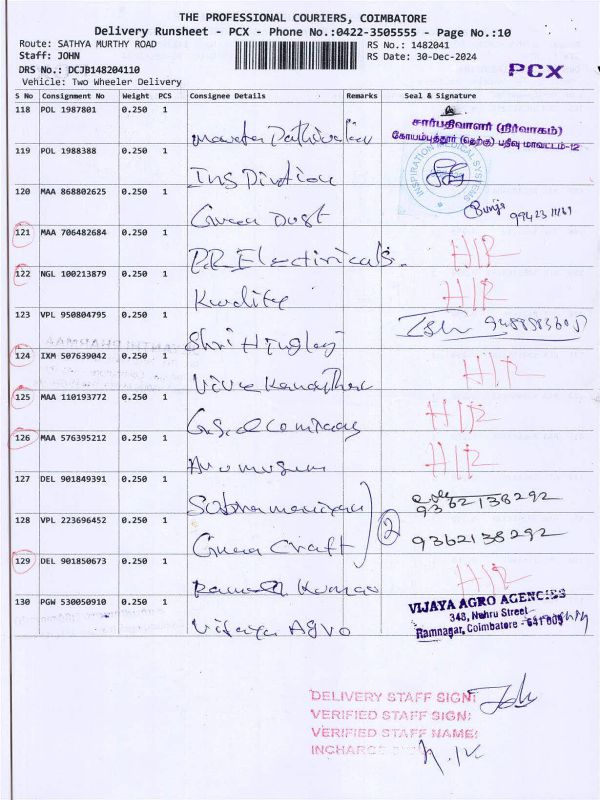 THE PROFESSIONAL COURIERS, COIMBATORE
Delivery Runsheet - PCX - Phone No.:0422-3505555 - Page No.:10
Route: SATHYA MURTHY ROAD RS No.: 1482041
Staff: JOHN RS Date: 30-Dec-2024
DRS No.: DCJB148204110 PCX
Vehicle: Two Wheeler Delivery
S No Consignment No Weight PCS Consignee Details Remarks Seal & Signature
118 POL 1987801 0.250 1
சார்பதிவாளர் (நிர்வாகம்)
கோயம்புத்தூர் (தெற்கு) பதிவு மாவட்டம்-12
119 POL 1988388 0.250 1 Inspiration
INSPIRATION MEDICAL SYSTEMS
120 MAA 868802625 0.250 1
121 MAA 706482684 0.250 1 P.R Electricals. H/R
122 NGL 100213879 0.250 1 Kwality H/R
123 VPL 950804795 0.250 1 Shri Hinglaj
124 IXM 507639042 0.250 1 H/R
125 MAA 110193772 0.250 1 H/R
126 MAA 576395212 0.250 1 Arumugam H/R
127 DEL 901849391 0.250 1 9362138292
128 VPL 223696452 0.250 1 Craft 2 9362138292
129 DEL 901850673 0.250 1 Ramesh Kumar H/R
130 PGW 530050910 0.250 1 Vijaya Agro
VIJAYA AGRO AGENCIES
348, Nehru Street
Ramnagar, Coimbatore - 641 009
DELIVERY STAFF SIGN:
VERIFIED STAFF SIGN:
VERIFIED STAFF NAME:
INCHARGE